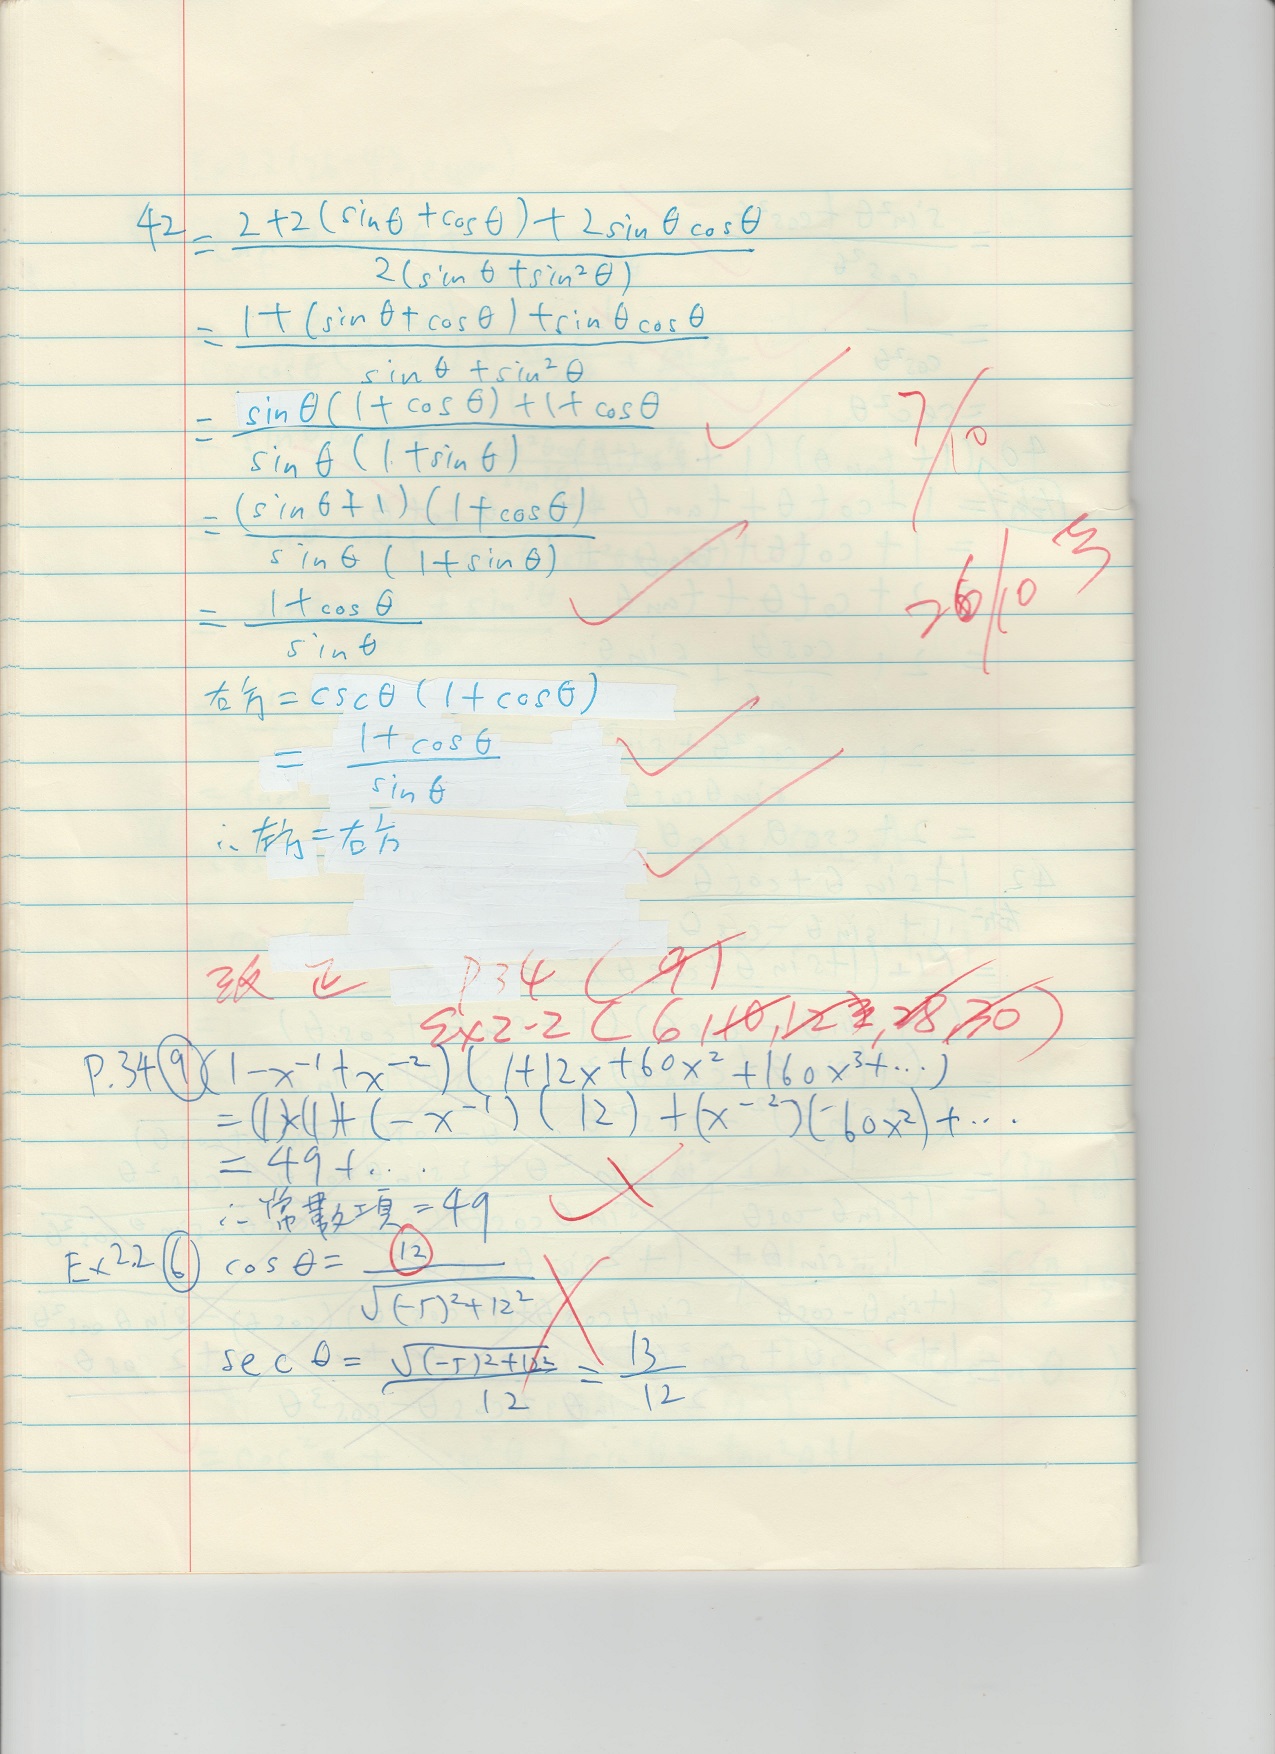 42 = 2+2(sinθ+cosθ)+2sinθcosθ / 2(sinθ+sin²θ)
= 1+(sinθ+cosθ)+sinθcosθ / sinθ+sin²θ
= sinθ(1+cosθ)+1+cosθ / sinθ(1+sinθ)
= (sinθ+1)(1+cosθ) / sinθ(1+sinθ)
= 1+cosθ / sinθ
右方=cscθ(1+cosθ)
= 1+cosθ / sinθ
∴左方=右方
7/10
6/10
改正 P34 (9)
Ex2-2 (6,10,12
P.34 ⑨ (1-x⁻¹+x⁻²)(1+12x+60x²+160x³+...)
= (1)(1)+(-x⁻¹)(12)+(x⁻²)(60x²)+...
= 49+...
∴常數項=49
Ex2.2 ⑥ cosθ= 12 / √(-5)²+12²
secθ= √(-5)²+12² / 12 = 13 / 12